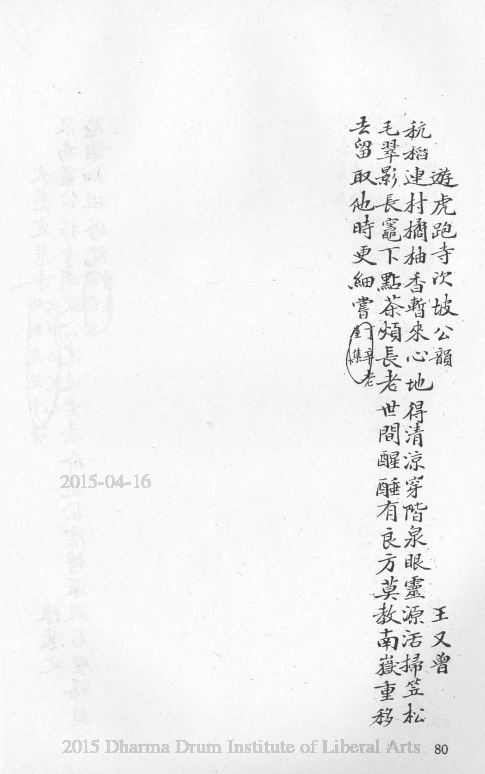 遊虎跑寺次坡公韻 王又曾
秔稻連村橘柚香暫來心地得清涼穿階泉眼靈源活掃笠松
毛翠影長竈下點茶煩長老世間醒睡有良方莫教南嶽重移
去留取他時更細嘗 丁辛老
屋集
2015-04-16
2015 Dharma Drum Institute of Liberal Arts
80